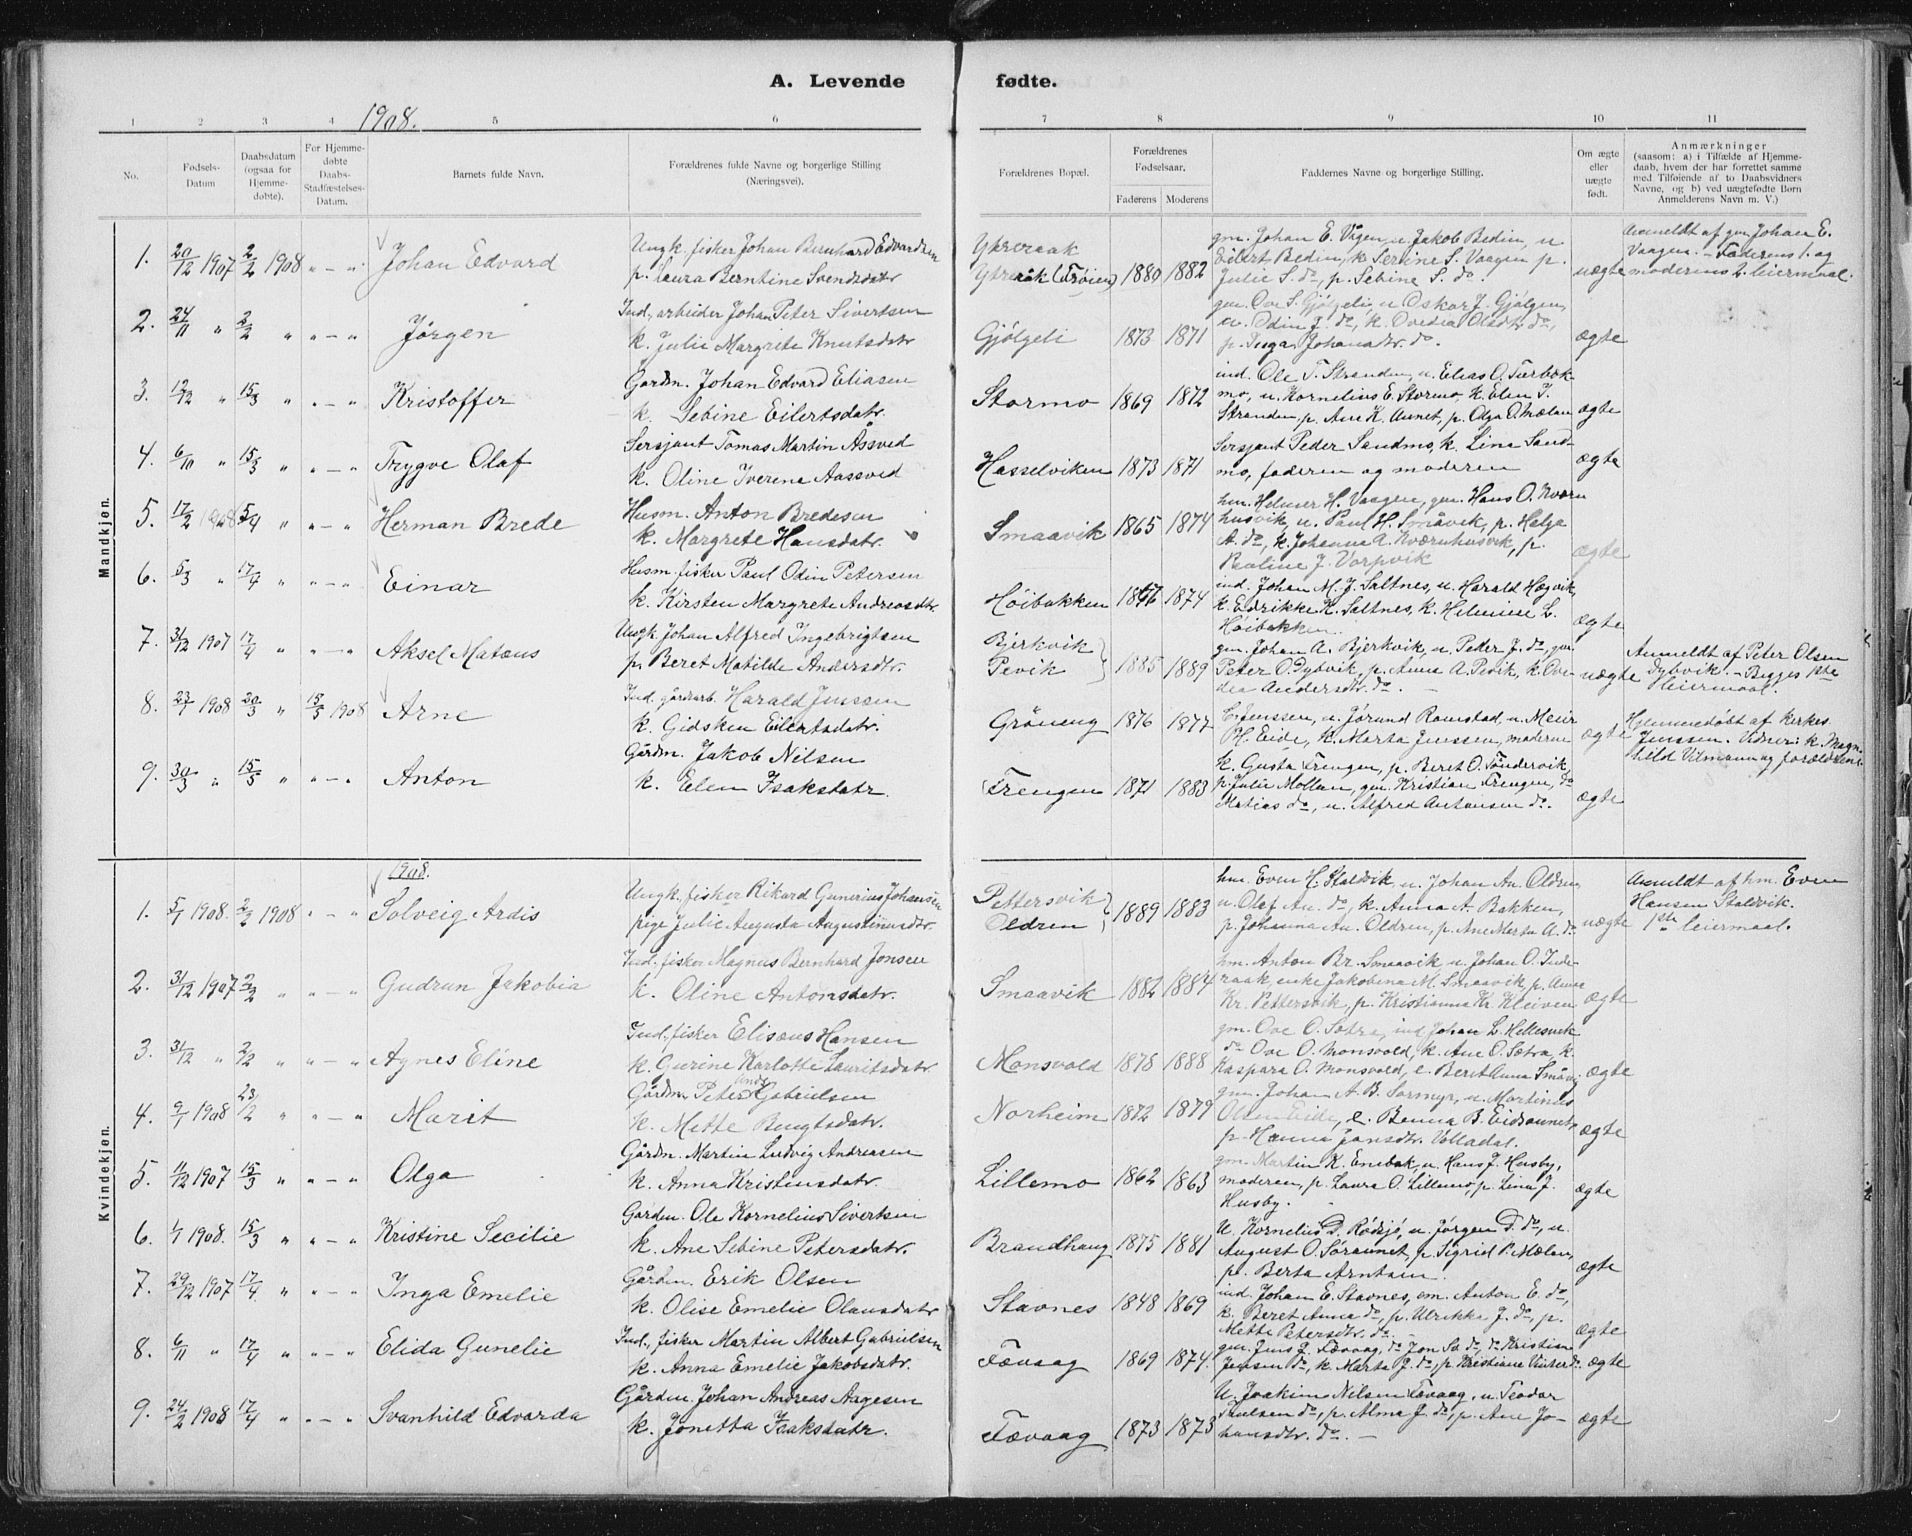 A. Levende fødte.
1908.
1 2 3 4 5 6 7 8 9 10 11
No.
Fødsels-
Datum
Daabsdatum
(ogsaa for
Hjemme-
døbte).
For Hjemme-
døbte
Daabs-
Stadfæstelses-
Datum.
Barnets fulde Navn.
Forældrenes fulde Navne og borgerlige Stilling
(Næringsvei).
Forældrenes Bopæl.
Forældrenes
Fødselsaar.
Faderens Moderens
Faddernes Navne og borgerlige Stilling.
Om ægte
eller
uægte
født.
Anmærkninger
(saasom: a) i Tilfælde af Hjemme-
daab, hvem der har forrettet samme
med Tilføiende af to Daabsvidners
Navne, og b) ved uægtefødte Børn
Anmelderens Navn m. V.)
Mandkjøn.
1. 20/12 1907 2/2 1908 " - " Johan Edvard
Ungk. fisker Johan Bernhard Edvardsen
p. Laura Berntine Svendsdatr
Ytreraak
Ytreraak (Frøien) 1880 1882
gm. Johan E. Vågen, u. Jakob Bedin, u.
Eilert Bedin, k. Serine S. Vaagen p.
Julie S. do, p. Sebine S. do.
uægte
Anmeldt af gm. Johan E.
Vaagen. - Faderens 1. og
moderens 2. leiermaal.
2. 24/11 " 2/2 " " - " Jørgen
Ind. arbeider Johan Peter Sivertsen
k. Julie Margrete Knutsdatr
Gjölgeli 1873 1871
gm. Ove S. Gjölgeli, u. Oskar J. Gjölgen,
u. Odin J. do, k. Ovedia Olsdtr. do,
p. Inga Johansdtr. do.
ægte
3. 12/12 " 15/3 " " - " Kristoffer
Gardm. Johan Edvard Eliasen
k. Sebine Eilertsdatr.
Stormo 1869 1872
ind. Ole T. Stranden, u. Elias O. Tærbak-
mo, u. Kornelius E. Stormo, k. Elen J.
Stranden, p. Ane K. Aunet, p. Olga O. Mælan
ægte
4. 6/10 " 15/3 " " - " Trygve Olaf
Sersjant Tomas Martin Åssved
k. Oline Iverene Aassved
Hasselviken 1873 1871
Sersjant Peder Sandmo, k. Lina Sand-
mo, faderen og moderen
ægte
5. 17/2 1908 5/4 " " - " Herman Brede
Husm. Anton Bredesen
k. Margrete Hansdatr.
Smaavik 1865 1874
hm. Helmer H. Vaagen, gm. Hans O. Kværn
husvik, u. Paul H. Småvik, p. Helga
A. do, k. Johanna A. Kværnhusvik, p.
Pauline J. Vorpvik
ægte
6. 5/3 " 17/4 " " - " Einar
Husm. fisker Paul Odin Petersen
k. Kirsten Margrete Andreasdtr
Höibakken 1874
ind. Johan M. J. Saltnes, u. Harald Hægvik,
k. Edrikke K. Saltnes, k. Helmine L.
Höibakken.
ægte
7. 31/12 1907 17/4 " " - " Aksel Matæus
Ungk. Johan Alfred Ingebrigtsen
p. Beret Matilde Andersdtr.
Bjerkvik
Pevik 1885 1889
gm. Johan A. Bjerkvik, u. Peder J. do, gm.
Peter O. Dybvik, p. Anna A. Pevik, k. Ove-
dia Andersdtr. do. -
uægte
Anmeldt af Peter Olsen
Dybvik. - Begges 1ste
leiermaal.
8. 23/1 1908 20/3 " 15/5 1908 Arne
Ind. gårdarb. Harald Jenssen
k. Gidsken Eilertsdatr.
Gröneng 1876 1877
C. Jenssen, u. Jörund Romstad, u. Meier
H. Eide, k. Merta Jenssen, moderen
ægte
Hjemmedøbt af kirkes.
Jenssen. Vidner: k. Magn-
hild Vilmann og forældrene.
9. 30/3 " 15/5 " " - " Anton
Gårdm. Jakob Nilsen
k. Elen Isaksdatr.
Trengen 1871 1883
k. Gusta Trengen, p. Beret O. Tøndervik,
p. Julie Mollan, gm. Kristian Trengen, do
Matias do, u. Alfred Antonsen do.
ægte
Kvindekjøn.
1908.
1. 5/1 1908. 2/2 1908 " - " Solveig Ardis
Ungk. fisker Rikard Gunerius Johansen
pige Julie Augusta Augustinusdtr.
Pettersvik
Oldren 1889 1883
hm. Even H. Staldvik, u. Johan An. Oldren,
u. Olaf An. do, k. Anna A. Bakken,
p. Johanna An. Oldren, p. Ane Marta A. do
uægte
Anmeldt af hm. Even
Hansen Staldvik.
1ste leiermaal.
2. 31/12 1907 2/2 " " - " Gudrun Jakobia
Ind. fisker Magnus Bernhard Jonsen
k. Oline Antonsdatr.
Smaavik 1882 1884
hm. Anton Br. Smaavik u. Johan O. Inde-
raak, enke Jakobina M. Smaavik, p. Anne
Kr. Pettersvik, p. Kristianna Kr. Kleiven
ægte
3. 31/12 " 2/2 " " - " Agnes Eline
Ind., fisker Elisæus Hansen
k. Gurine Karlotte Lauritsdatr
Monsvold 1878 1888
gm. Ove O. Sætra, ind. Johan L. Hellesvik
do Ove O. Monsvold, k. Ane O. Sætra, k.
Kaspara O. Monsvold, e. Beret Anna Småvig
ægte
4. 9/1 1908 23/2 " " - " Marit
Gårdm. Peter Gabrielsen
k. Mette Bengtsdatr.
Norheim 1872 1879
gm. Johan A. B. Sormyr, u. Martinus
Olsen Eide, e. Benna B. Eidsaunet,
p. Hanna Jonsdtr. Volladal.
ægte
5. 11/12 1907 15/3 " " - " Olga
Gårdm. Martin Ludvig Andreasen
k. Anna Kristinsdatr.
Lillemo 1862 1863
gm. Martin K. Enebak, u. Hans J. Husby,
moderen, p. Laura O. Lillemo, p. Lina J.
Husby.
ægte
6. 1/1 1908. 15/3 " " - " Kristine Secilie
Gardm. Ole Kornelius Sivertsen
k. Ane Sebine Petersdatr.
Brandhaug 1875 1881
U. Kornelius D. Rödsjö, u. Jørgen D. do, u.
August O. Söraunet, p. Sigrid P. Mælan,
p. Berta Arntsen.
ægte
7. 29/12 1907 17/4 " " - " Inga Emelie
Gårdm. Erik Olsen
k. Olise Emelie Olausdatr
Stavnes 1848 1869
ind. Johan E. Stavnes, em. Anton E. do,
k. Beret Anna do, p. Ulrikka J. do, p.
Mette Petersdtr. do.
ægte
8. 6/11 " 17/4 " " - " Elida Gunelie
Ind., fisker Martin Albert Gabrielsen
k. Anna Emelie Jakobsdatr.
Tævaag 1869 1874.
gm. Jens J. Tævaag, do Jon Sa do, do Kristian
Jensen do, k. Marta J. do, p. Kristiane do.
ægte
9. 24/2 1908 17/4 " " - " Svanhild Edvarda
Gårdm. Johan Andreas Aagesen
k. Jonetta Isaksdatr.
Tævaag 1873 1873
U. Joakim Nilsen Tævaag, u. Teodor
Paulsen do, p. Alma J. do, p. Ane Jo-
hansdtr. do. -
ægte